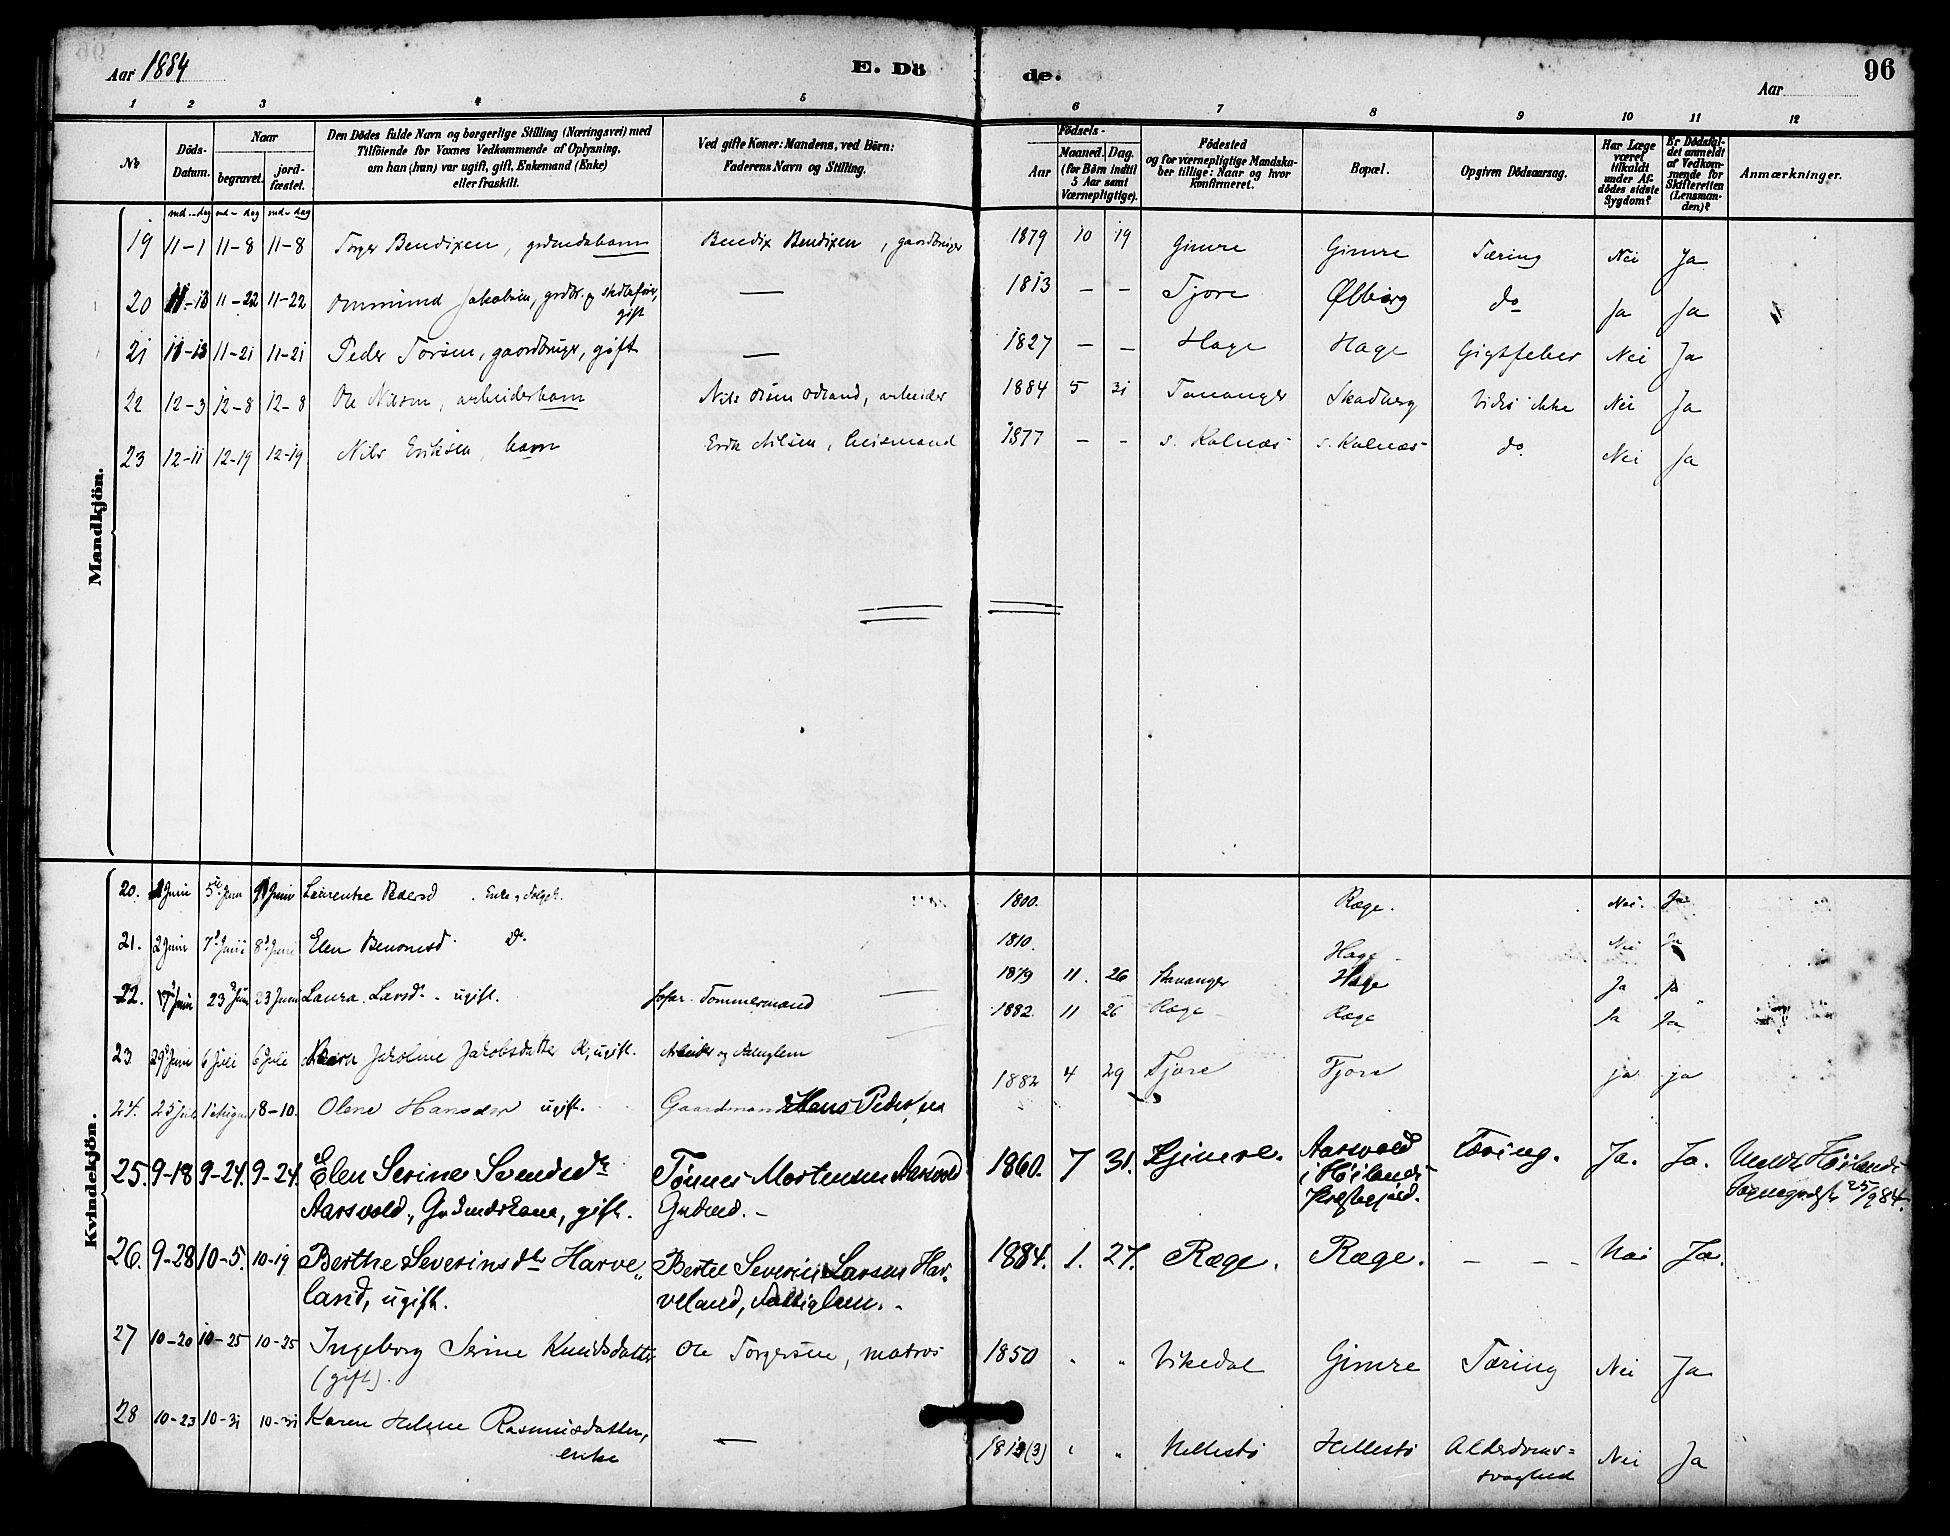 Aar 1884 E. Dö
de. Aar 96
1 2 3 4 5 6 7 8 9 10 11 12
No
Döds-Datum.
Naar
begravet. jord-fæstet.
Den Dödes fulde Navn og borgerlige Stilling (Næringsvei) med
Tilföiende for Voxnes Vedkommende af Oplysning,
om han (hun) var ugift, gift, Enkemand (Enke)
eller fraskilt.
Ved gifte Koner: Mandens, ved Börn:
Faderens Navn og Stilling.
Födsels-
Aar Maaned. Dag.
(for Börn indtil
5 Aar samt
Værnepligtige).
Födested
og for værnepligtige Mandska-
ber tillige: Naar og hvor
konfirmeret.
Bopæl.
Opgiven Dödsaarsag.
Har Læge
været
tilkaldt
under Af-
dödes sidste
Sygdom?
Er Dödsfal-
det anmeldt
af Vedkom-
mende for
Skifteretten
(Lensman-
den)?
Anmærkninger.
md - dag md - dag md - dag
Mandkjön.
19 11-1 11-8 11-8 Torger Bendixen, grdmdsbarn Bendix Bendixen, gaardbruger 1879 10 19 Gimre Gimre Tæring Nei Ja
20 11-13 11-22 11-22 Ommund Jakobsen, grdbr. og
gift — 1813 — — Tjore Ølberg do Ja Ja
21 11-13 11-21 11-21 Peder Torsen, gaardbruger, gift — 1827 — — Hage Hage Gigtfeber Nei Ja
22 12-3 12-8 12-8 Ole Nilsen, arbeiderbarn Nils Olsen Odland, arbeider 1884 5 31 Tananger Skadberg Vides ikke Nei Ja
23 12-11 12-19 12-19 Nils Eriksen, barn Erik Nilsen, huismand 1877 - - s. Kolnæs s. Kolnæs do Nei Ja
Kvindekjön.
20. Juni 5te Juni Juni Laurentze Pedersd. Enke 1800. Ræge. Nei. Ja
21. 2 Juni 7d Juni 8d Juni Elen Benonesd. Do 1810. Hage Nei Ja
22. 17 Juni 23d Juni 23 Juni Laura Larsdr. ugift. Tømmermand 1879 11. 26 Stavanger Hage Ja Ja
1882. 11 26 Ræge Ræge Ja Ja
23 29d Juni 6 Juli 6 Juli Jakoline Jakobsdatter ugift. Arbeider og
24. 25 Juli 1 August 8-10. Olene Hansdtr ugift. Gaardmand Hans Pedersen 1882 4 29 Tjore Tjore ja ja
25. 9-18 9-24. 9-24. Elen Serine Svendsdtr
Aarsvold, Grdmdskone, gift. Tönnes Mortensen Aarsvold
Grdmd. - 1860. 7 31. Gimre. Aarsvold
i Höilands
Præstegjeld. Tæring. Ja. Ja. Meldt Höilands
Sogneprest 25/9 84.
26. 9-28 10-5. 10-19 Berthe Severinsdtr Harve-
land, ugift. Bertel Severin Larsen Har-
veland, Fattiglem. - 1884. 1. 27. Ræge. Ræge. - - Nei Ja.
27 10-20 10-25 10-25 Ingeborg Serine Knudsdatter
(gift). Ole Torgersen, matros 1850 " " Vikedal Gimre Tæring Nei Ja
28 10-23 10-31 10-31 Karen Helene Rasmusdatter,
enke — 1812(3) " " Hellestö Hellestö Alderdoms-
svaghed Nei Ja